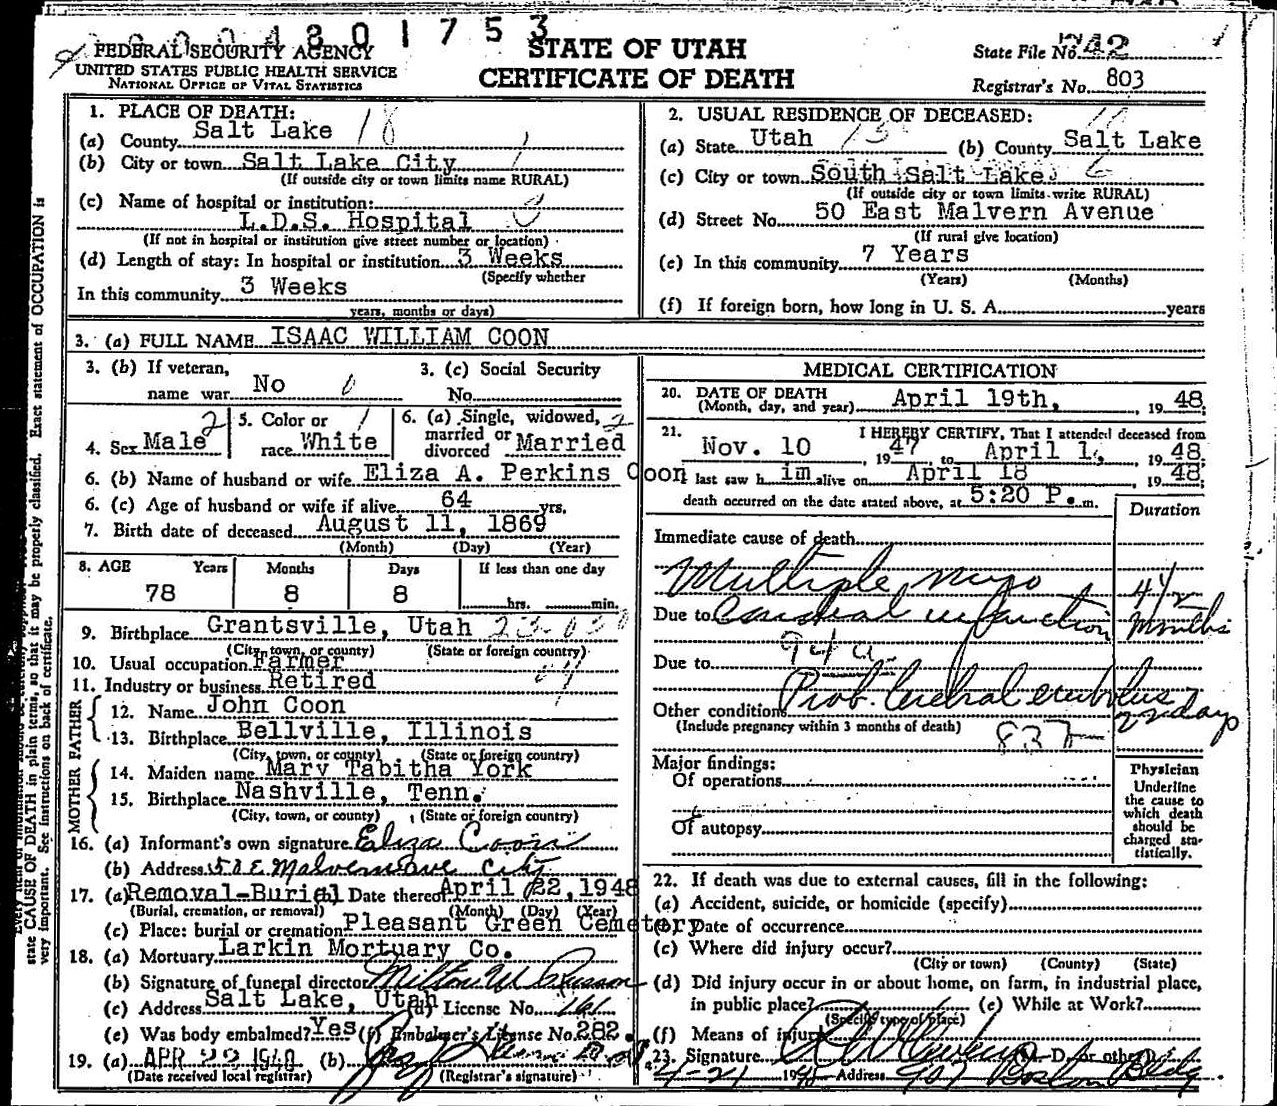 4801753
FEDERAL SECURITY AGENCY
UNITED STATES PUBLIC HEALTH SERVICE
NATIONAL OFFICE OF VITAL STATISTICS
STATE OF UTAH
CERTIFICATE OF DEATH
State File No. 742
Registrar's No. 803
1. PLACE OF DEATH:
(a) County Salt Lake 18
(b) City or town Salt Lake City 1
(If outside city or town limits name RURAL)
(c) Name of hospital or institution:
L.D.S. Hospital
(If not in hospital or institution give street number or location)
(d) Length of stay: In hospital or institution 3 Weeks
(Specify whether
In this community 3 Weeks
years, months or days)
2. USUAL RESIDENCE OF DECEASED:
(a) State Utah (b) County Salt Lake
(c) City or town South Salt Lake
(If outside city or town limits write RURAL)
(d) Street No. 50 East Malvern Avenue
(If rural give location)
(e) In this community 7 Years
(Years) (Months)
(f) If foreign born, how long in U. S. A. years
3. (a) FULL NAME ISAAC WILLIAM COON
3. (b) If veteran, name war No
3. (c) Social Security No.
4. Sex Male 2
5. Color or race White 1
6. (a) Single, widowed, married or divorced Married 2
6. (b) Name of husband or wife Eliza A. Perkins Coon
6. (c) Age of husband or wife if alive 64 yrs.
7. Birth date of deceased August 11, 1869
(Month) (Day) (Year)
8. AGE Years Months Days If less than one day
78 8 8 hrs. min.
9. Birthplace Grantsville, Utah
(City, town, or county) (State or foreign country)
10. Usual occupation Farmer
11. Industry or business Retired
FATHER
12. Name John Coon
13. Birthplace Bellville, Illinois
(City, town, or county) (State or foreign country)
MOTHER
14. Maiden name Mary Tabitha York
15. Birthplace Nashville, Tenn.
(City, town, or county) (State or foreign country)
16. (a) Informant's own signature Eliza Coon
(b) Address 50 E Malvern Ave City
17. (a) Removal-Burial Date thereof April 22, 1948
(Burial, cremation, or removal) (Month) (Day) (Year)
(c) Place: burial or cremation Pleasant Green Cemetery
18. (a) Mortuary Larkin Mortuary Co.
(b) Signature of funeral director Milton W.
(c) Address Salt Lake, Utah (d) License No. 161
(e) Was body embalmed? Yes (f) Embalmer's License No. 282.
19. (a) APR 22 1948 (b)
(Date received local registrar) (Registrar's signature)
MEDICAL CERTIFICATION
20. DATE OF DEATH
(Month, day, and year) April 19th, , 19 48;
21. I HEREBY CERTIFY, That I attended deceased from
Nov. 10 , 19 47 to April 1 , 19 48;
I last saw h im alive on April 18 , 19 48;
death occurred on the date stated above, at 5:20 P. m.
Duration
Immediate cause of death
Multiple myo
Due to cardial infarction 4 1/2 months
94a
Due to
Prob. Cerebral embolus 22 days
Other conditions
(Include pregnancy within 3 months of death)
Major findings:
Of operations
Of autopsy
Physician
Underline
the cause to
which death
should be
charged sta-
tistically.
22. If death was due to external causes, fill in the following:
(a) Accident, suicide, or homicide (specify)
(b) Date of occurrence
(c) Where did injury occur?
(City or town) (County) (State)
(d) Did injury occur in or about home, on farm, in industrial place,
in public place? (e) While at Work?
(Specify type of place)
(f) Means of injury
23. Signature (M. D. or other)
4-21 1948 Address 907 Boston Bldg.
state CAUSE OF DEATH in plain terms, so that it may be properly classified. Exact statement of OCCUPATION is
very important. See instructions on back of certificate.